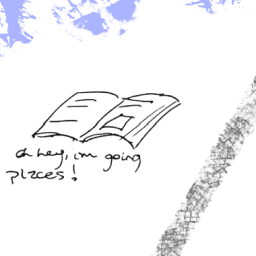 oh hey, im going
places!